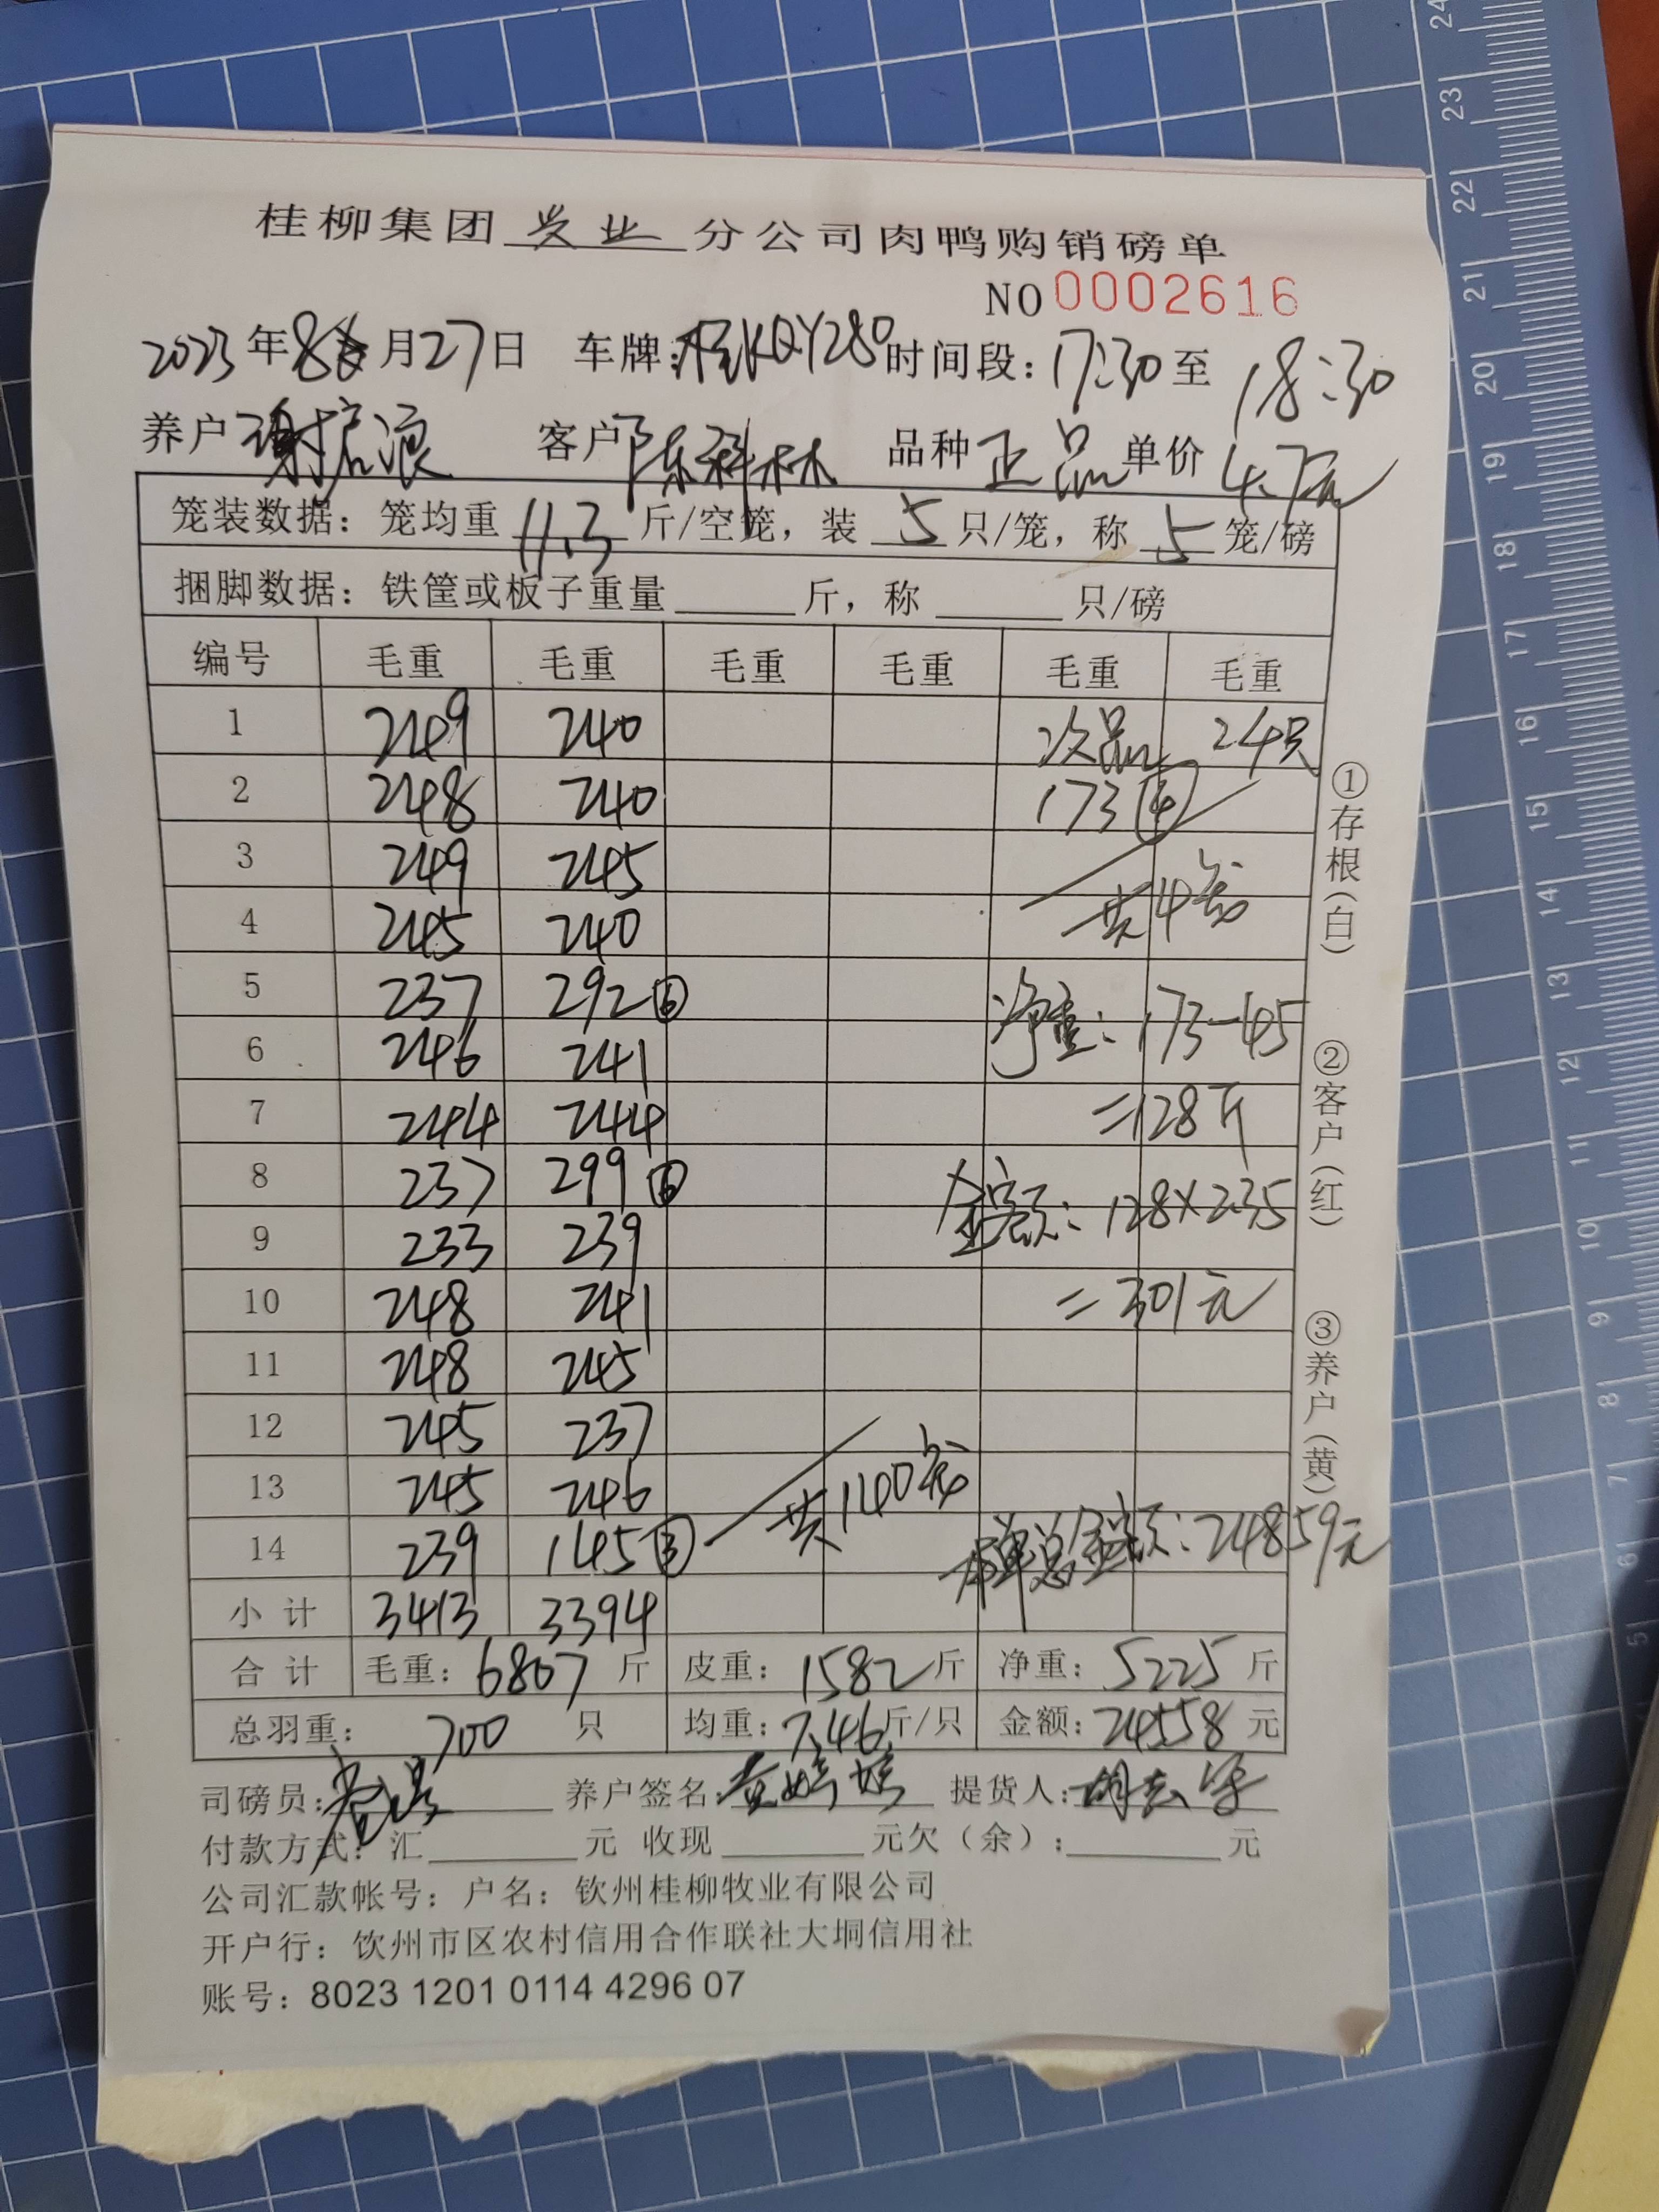 桂柳集团 兴业 分公司肉鸭购销磅单
NO 0002616
2023年8月27日 车牌:桂KQY280 时间段:17:30至18:30
养户 谢振浪 客户 陈科林 品种 正品 单价 4.7元
笼装数据：笼均重 11.3 斤/空笼，装 5 只/笼，称 5 笼/磅
捆脚数据：铁筐或板子重量______斤，称______只/磅
编号 毛重 毛重 毛重 毛重 毛重 毛重
1 249 240 次品 24只
2 248 240 173④
3 249 245
4 245 240 共4笼
5 237 292⑥ 净重：173-45
6 246 241
7 244 244 =128斤
8 237 299⑥
9 233 239 金额：128×2.35
10 248 241 =301元
11 248 245
12 245 237
13 245 246 共140笼
14 239 145③ 本单总金额：24859元
小计 3413 3394
合计 毛重：6807斤 皮重：1582斤 净重：5225斤
总羽重：700只 均重：7.46斤/只 金额：24558元
司磅员： 养户签名： 提货人：
付款方式：汇______元 收现______元欠（余）：______元
公司汇款帐号：户名：钦州桂柳牧业有限公司
开户行：钦州市区农村信用合作联社大垌信用社
账号：8023 1201 0114 4296 07
①存根（白）
②客户（红）
③养户（黄）
24
23
22
21
20
19
18
17
16
15
14
13
12
11
10
9
8
7
6
5